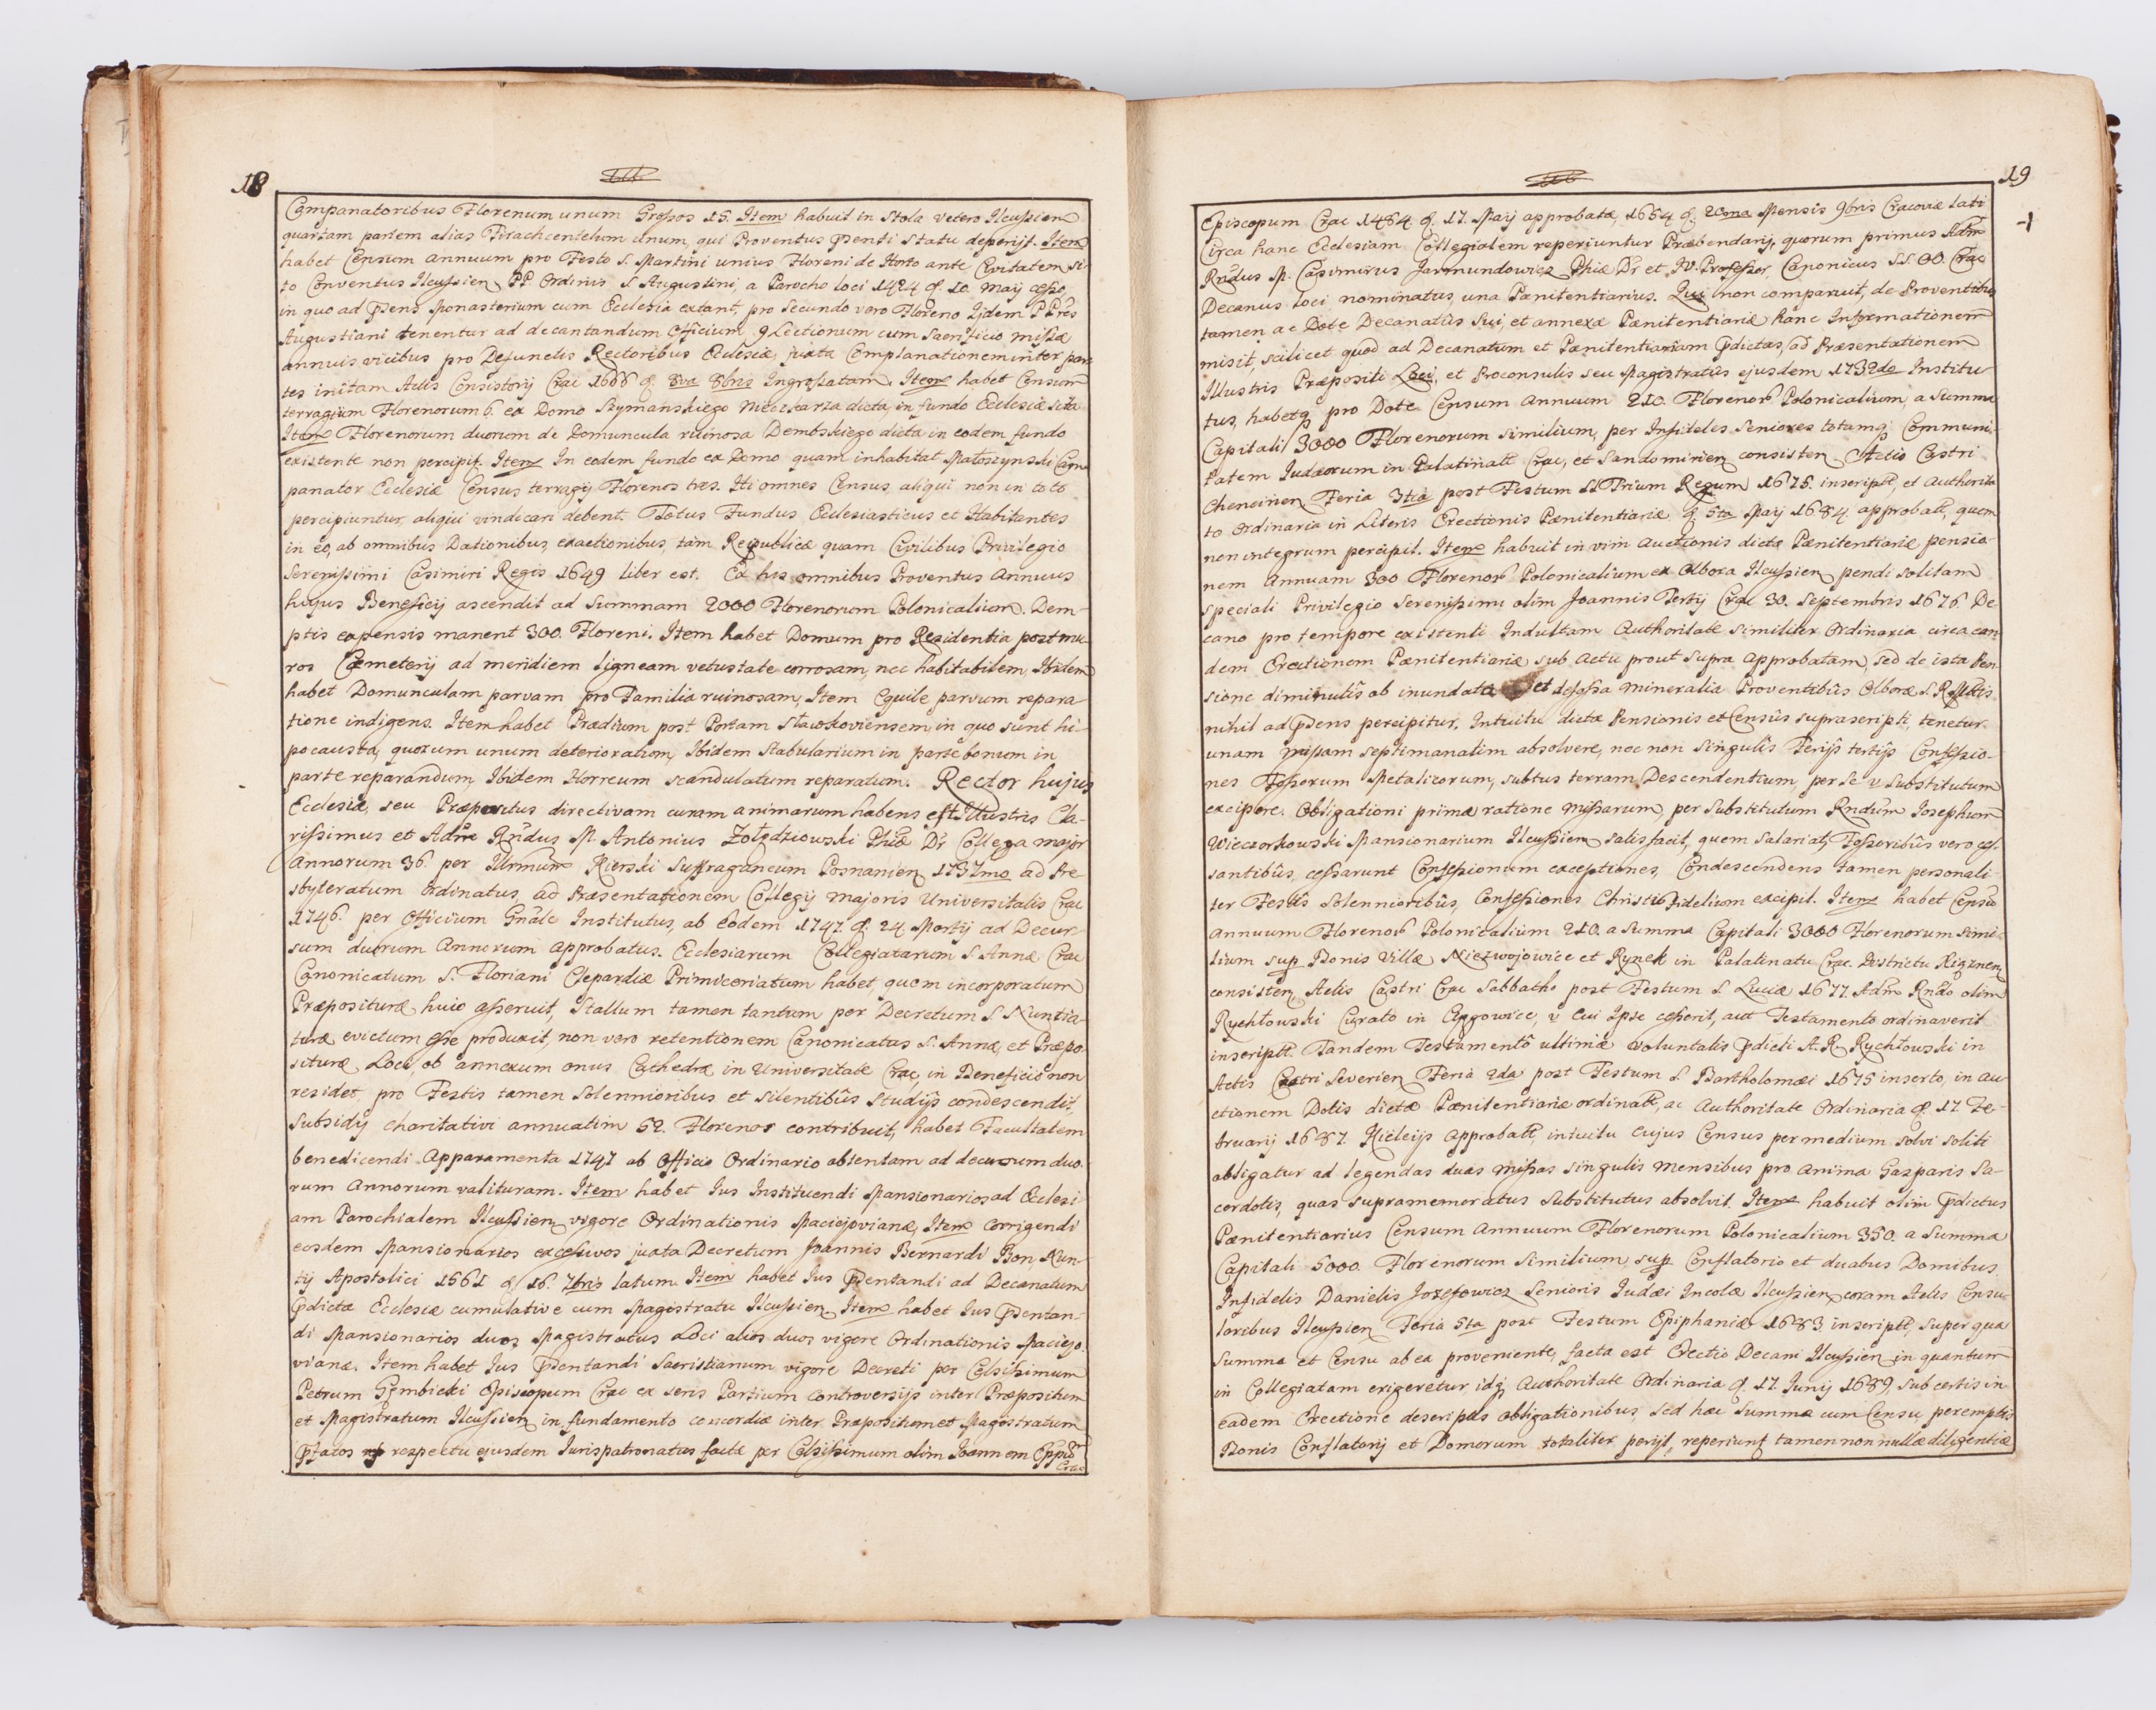 18
Campanatoribus Florenum unum Grossos 15. Item habuit in Stola vetero Ilcussien
quartam partem alias Firachcentelum unum, qui Proventus pðenti Statu deperijt. Item
habet Censum annuum pro Festo S. Martini unius Floreni de Horto ante Civitatem si-
to Conventus Ilcussien PP Ordinis S Augustini, a Parocho loci 1424 d. 10. Maij cesso,
in quo ad pðens Monasterium cum Ecclesia extant, pro Secundo vero Floreno Ijdem PPres
Augustiani tenentur ad decantandum Officium 9 Lectionum cum Sacrificio missæ
annuis vicibus pro Defunctis Rectoribus Ecclesiæ, juxta Complanationem inter par-
tes initam Actis Consistorij Crac 1668 d. 8va 8bris Ingrossatam. Item habet Censum
terragium Florenorum 6. ex Domo Szymanskiego Mieczkarza dicta, in fundo Ecclesiæ sita
Item Florenorum duorum de Domuncula ruinosa Dembskiego dicta in eodem fundo
existente non percipit. Item In eodem fundo ex Domo quam inhabitat Małoszynski Cam-
panator Ecclesiæ Census terragij Florenos tres. Hi omnes Census aliqui non in toto
percipiuntur, aliqui vindicari debent. Totus Fundus Ecclesiasticus et Habitantes
in eo, ab omnibus Dationibus, exactionibus, tàm Reipublicæ quam Civilibus Privilegio
Serenissimi Casimiri Regis 1649 liber est. Ex his omnibus Proventus Annuus
hujus Beneficij ascendit ad Summam 2000 Florenorum Polonicalium. Dem-
ptis expensis manent 300. Floreni. Item habet Domum pro Residentia post mu-
ros Cæmeterij ad meridiem ligneam vetustate corrosam, nec habitabilem, Ibidem
habet Domunculam parvam pro Familia ruinosam, Item Equile parvum repara-
tione indigens. Item habet Prædium post Portam Sławkoviensem, in quo sunt hi-
pocausta, quorum unum deterioratum, Ibidem Stabularium in parte bonum in
parte reparandum, Ibidem Horreum scandulatum reparatum. Rector hujus
Ecclesiæ, seu Præpositus directivam curam animarum habens est Illustris, Cla-
rissimus et Adm Rndus M. Antonius Zołędziowski Phiæ Dr Collega major
Annorum 36. per Illrmum Kierski Suffraganeum Posnanien 1737mo ad Pre-
sbyteratum Ordinatus, ad Præsentationem Collegij majoris Universitatis Crac
1746. per Officium Gnale Institutus, ab eodem 1747. d. 24. Martij ad Decur-
sum duorum Annorum approbatus. Ecclesiarum Collegiatarum S Annæ Crac
Canonicatum S. Floriani Clepardiæ Primiceriatum habet, quem incorporatum
Præposituræ huic asseruit, Stallum tamen tantum per Decretum S Nuntia-
turæ evictum esse produxit, non vero retentionem Canonicatus S. Annæ, et Præpo-
situræ Loci, ob annexum onus Cathedræ in Universitate Crac, in Beneficio non
residet, pro Festis tamen Solennioribus et silentibûs Studijs condescendit,
Subsidij charitativi annuatim 52. Florenos contribuit, habet Facultatem
benedicendi Apparamenta 1747 ab Officio Ordinario obtentam ad decursum duo-
rum Annorum valituram. Item habet Ius Instituendi Mansionarios ad Ecclesi-
am Parochialem Ilcussien vigore Ordinationis Maciejovianæ, Item Corrigendi
eosdem Mansionarios excessivos juxta Decretum Joannis Bernardi Bon, Nun-
tij Apostolici 1561 d 16. 7bris latum. Item habet Ius pðentandi ad Decanatum
pdictæ Ecclesiæ cumulative cum Magistratu Ilcussien Item habet Ius pðentan-
di Mansionarios duos, Magistratus Loci alios duos vigore Ordinationis Maciejo-
vianæ. Item habet Ius pðentandi Sacristianum vigore Decreti per Celsissimum
Petrum Gębicki Episcopum Crac ex seris Partium controversijs inter Præpositum
et Magistratum Ilcussien, in fundamento concordiæ inter Præpositum et Magistratum
pfatos respectu ejusdem Iurispatronatus factæ per Celsissimum olim Joannem Eppum
Crac
19
-1
Episcopum Crac 1484 d. 17. Maij approbatæ, 1654 d. 20ma Mensis 9bris Cracoviæ lati
Circa hanc Ecclesiam Collegialem reperiuntur Præbendarij, quorum primus Adm
Rndus M. Casimirus Jarmundowicz Phiæ Dr et IV. Professor, Canonicus SS. OO. Crac
Decanus loci nominatus, una Pænitentiarius. Qui non comparuit, de Proventibus
tamen ac Dote Decanatûs sui, et annexæ Pænitentiariæ hanc Informationem
misit, scilicet quod ad Decanatum et Pænitentiariam pdictas, ad Præsentationem
Illustris Præpositi Loci, et Proconsulis seu Magistratûs ejusdem 1732do Institu-
tus, habetq pro Dote Censum annuum 210. Florenor Polonicalium, a Summa
Capitali 3000 Florenorum similium, per Infideles Seniores totamq Communi-
tatem Iudæorum in Palatinatt Crac, et Sandomirien consisten Actis Castri
Chencinen Feria 3tia post Festum SS Trium Regum 1675. inscriptt, et authorita-
te Ordinaria in Literis Erectionis Pænitentiariæ d 5ta Maij 1684 approbatt, quem
non integrum percipit. Item habuit in vim auctionis dictæ Pænitentiariæ, pensio-
nem Annuam 300 Florenor Polonicalium ex Olbora Ilcussien pendi solitam
speciali Privilegio Serenissimi olim Joannis Tertij Crac 30. Septembris 1676. De-
cano pro tempore existenti Indultam Authoritate similiter Ordinaria circa ean-
dem Erectionem Pænitentiariæ sub actu prout supra approbatam, sed de ista Pen-
sione diminutis ob inundata et defossa mineralia Proventibûs Olboræ S. R. Mttis
nihil ad pðens percipitur. Intuitu dictæ Pensionis et Censûs suprascripti, tenetur
unam missam septimanatim absolvere, nec non singulis Ferijs tertijs Confessio-
nes Fossorum Metalicorum, subtus terram Descendentium, per se v Substitutum
excipere. Obligationi primæ ratione missarum, per Substitutum Rndum Josephum
Wieczorkowski Mansionarium Ilcussien satisfacit, quem Salariat, Fossoribûs vero ces-
santibûs, cessarunt Confessionum exceptiones, Condescendens tamen personali-
ter Festis Solennioribûs, Confessiones Christi Fidelium excipit. Item habet Censũ
annuum Florenor Polonicalium 210. a Summa Capitali 3000 Florenorum Simi-
lium sup Bonis Villæ Niezwojowice et Rynek in Palatinatu Crac. Districtu Xiąznen
consisten, Actis Castri Crac Sabbatho post Festum S Luciæ 1677. Adm Rndo olim
Rychłowski Curato in Cięgowice, v Cui Ipse cesserit, aut Testamento ordinaverit
inscriptt. Tandem Testamentô ultimæ voluntatis pdicti A. R. Rychłowski in
Actis Castri Severien Feria 2da post Festum S Bartholomæi 1675 inserto, in au-
ctionem Dotis dictæ Pænitentiariæ ordinatt, ac Authoritate Ordinaria d. 17. Fe-
bruarij 1687. Kielcijs approbatt, intuitu cujus Census per medium solvi soliti
obligatur ad legendas duas missas singulis mensibus pro anima Gasparis Sa-
cerdotis, quas supramemoratus Substitutus absolvit. Item habuit olim pdictus
Pænitentiarius Censum annuum Florenorum Polonicalium 350. a Summa
Capitali 5000. Florenorum Similium, sup Conflatorio et duabus Domibus
Infidelis Danielis Jozefowicz Senioris Iudæi Incolæ Ilcussien, coram Actis Consu-
laribus Ilcussien Feria 5ta post Festum Epiphaniæ 1683. inscriptt, super qua
Summa et Censu ab ea proveniente, facta est Erectio Decani Ilcussien in quantum
in Collegiatam erigeretur, idq Authoritate Ordinaria d. 17 Junij 1689, sub certis in
eadem Erectione descriptis obligationibus, sed hæc Summa cum Censu peremptis
Bonis Conflatorij et Domorum totaliter perijt, reperiunt tamen non nullæ diligentiæ